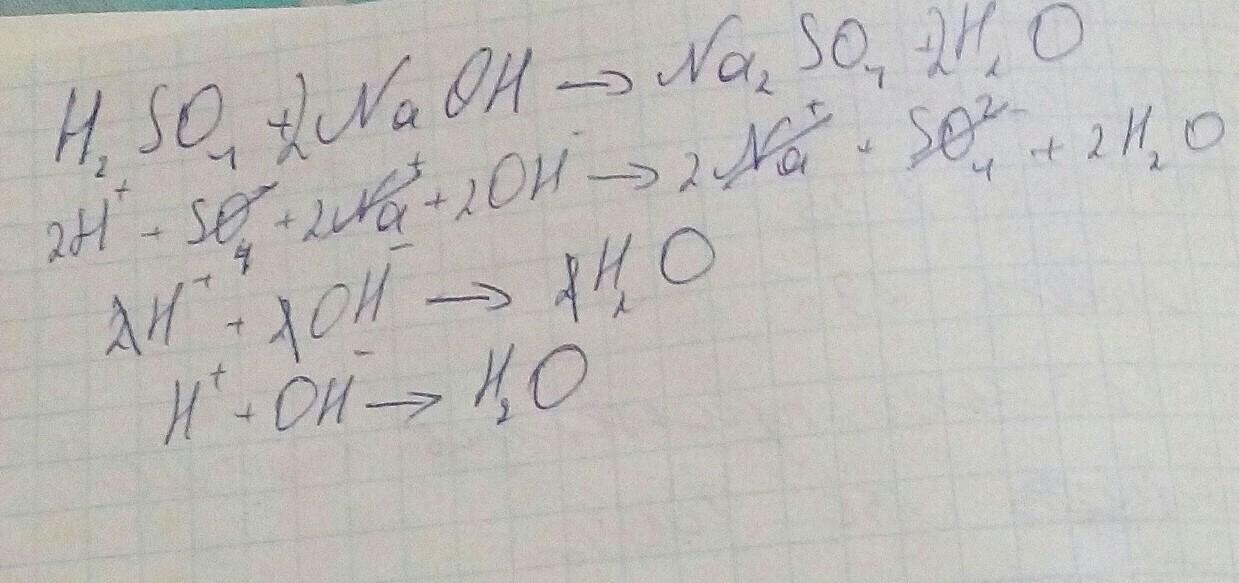 H₂SO₄ + 2NaOH → Na₂SO₄ + 2H₂O
2H⁺ + SO₄⁻ + 2Na⁺ + 2OH⁻ → 2Na⁺ + SO₄²⁻ + 2H₂O
2H⁺ + 2OH⁻ → 2H₂O
H⁺ + OH⁻ → H₂O